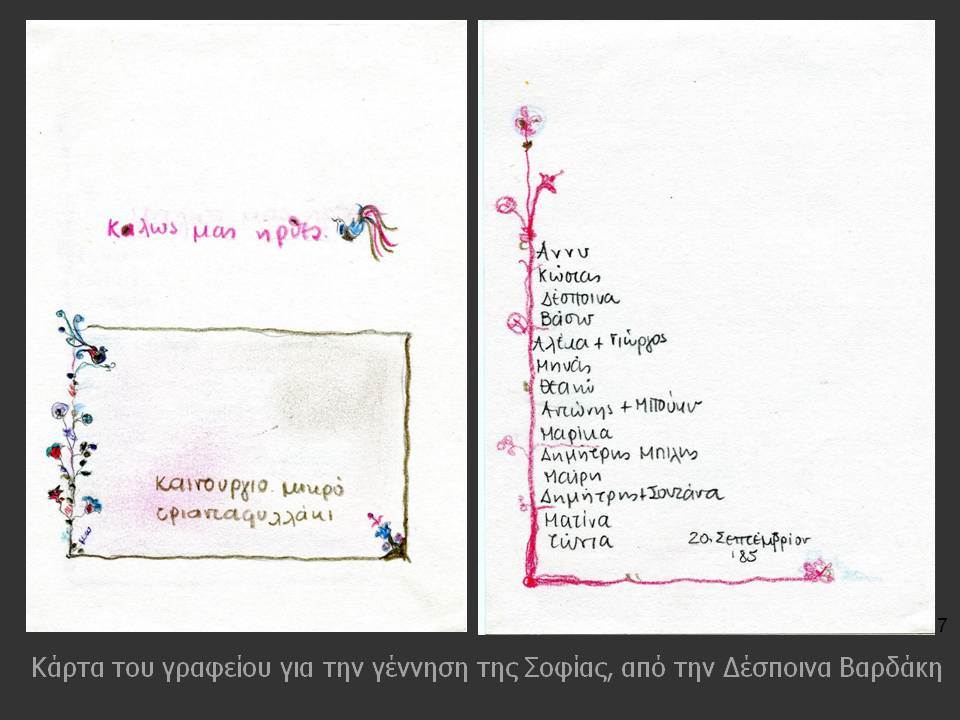 Καλως μας ηρθες.
Καινουργιο μικρό
τριανταφυλλάκι
Αννυ
Κώστας
Δέσποινα
Βάσω
Αλέκα + Γιώργος
Μηνάς
Θεανώ
Αντώνης + Μπούκη
Μαρίκα
Δημήτρης Μπίλης
Μαίρη
Δημήτρης + Σουζάνα
Ματίνα
Τώνια
20. Σεπτεμβρίου
'85
7
Κάρτα του γραφείου για την γέννηση της Σοφίας, από την Δέσποινα Βαρδάκη